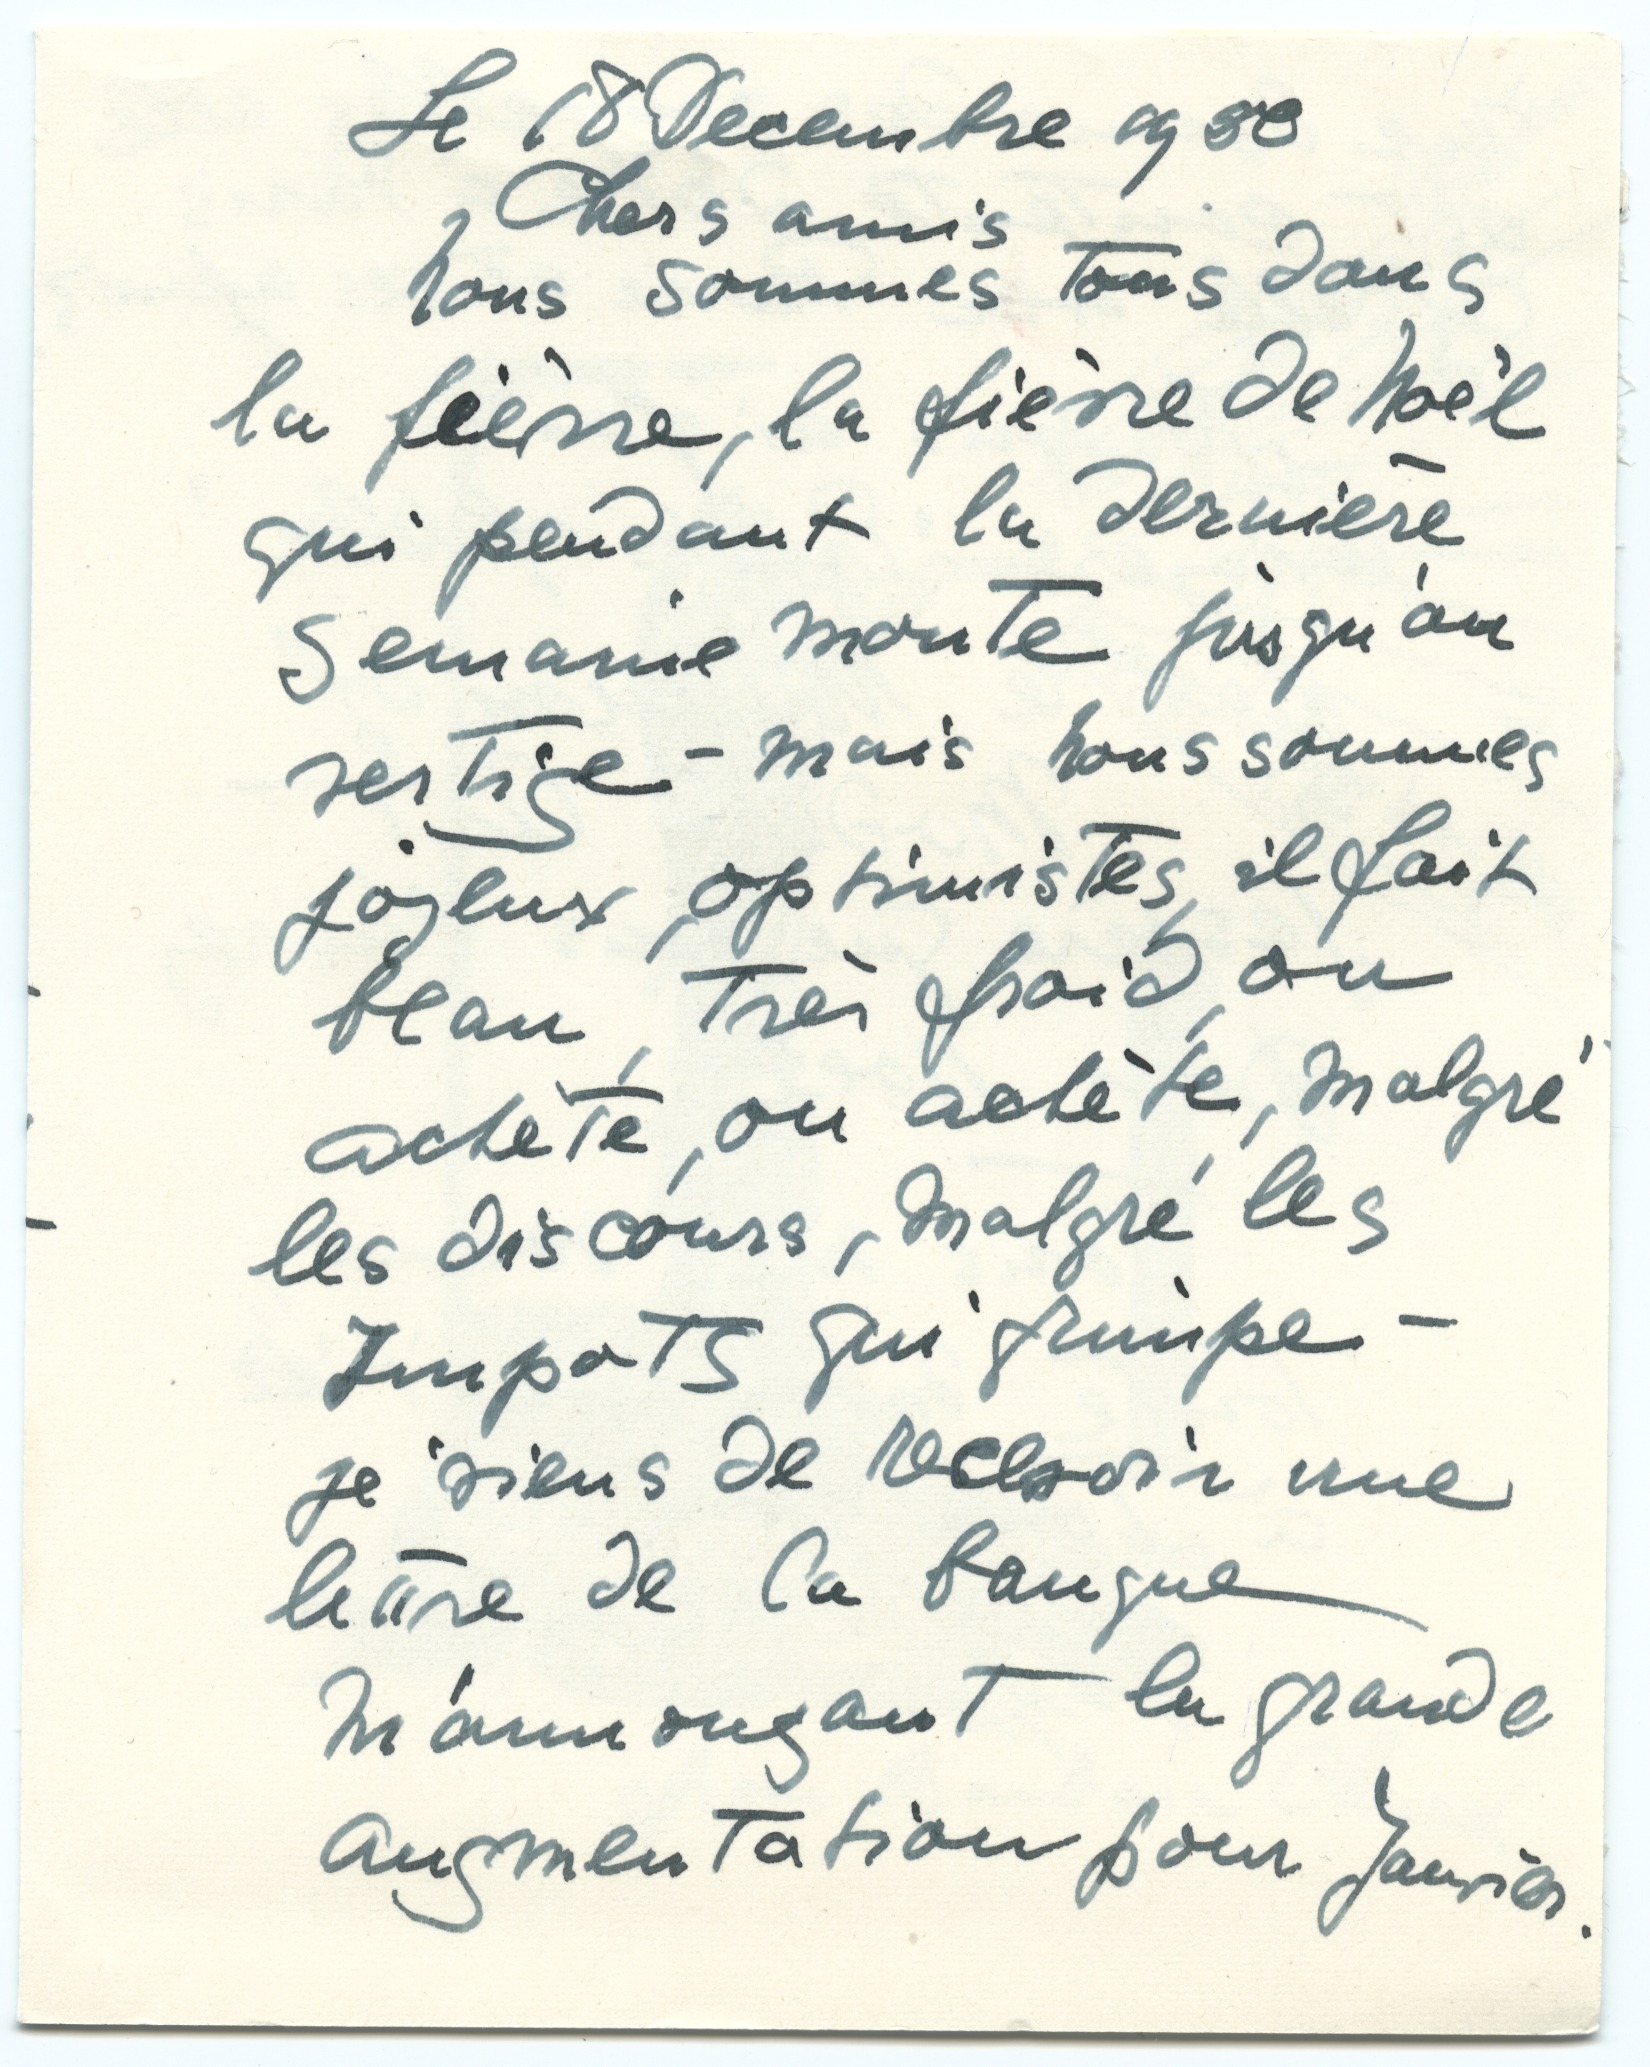 Le 18 Decembre 1980
Chers amis
nous sommes tous dans
la fièvre, la fièvre de Noël
qui pendant la dernière
semaine monte jusqu'au
vertige - mais nous sommes
joyeux, optimistes, il fait
beau, très froid, on
achète, on achète, malgré
les discours, malgré les
Impots qui grimpe -
je viens de recevoir une
lettre de la banque
m'annonçant la grande
augmentation pour Janvier.